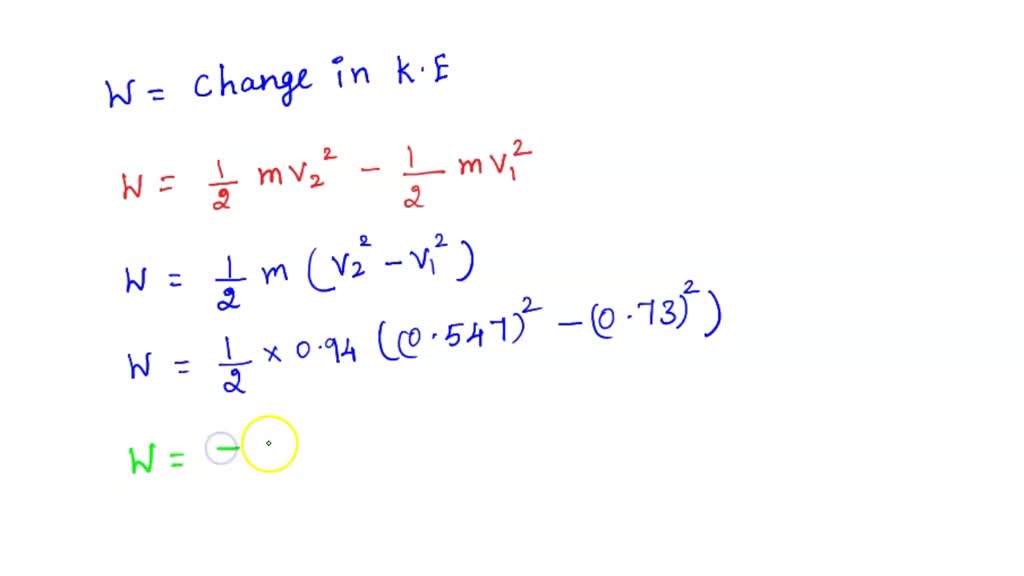 W = Change in K.E
W = 1/2 mv₂² - 1/2 mv₁²
W = 1/2 m (v₂² - v₁²)
W = 1/2 × 0.94 ((0.547)² - (0.73)²)
W = -